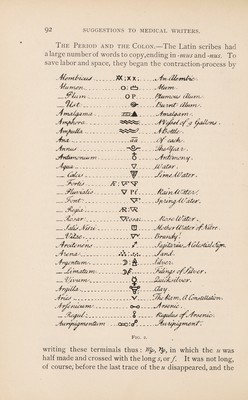 92 SUGGESTIONS TO MEDICAL WRITERS.
THE PERIOD AND THE COLON.—The Latin scribes had
a large number of words to copy, ending in -mus and -nus. To
save labor and space, they began the contraction-process by
Alembicus An Alembic.
Alumen Alum.
— Plum. O P. Plumous Alum.
— Ust. Burnt Alum.
Amalgama Amalgam.
Amphora A Vessel of 9 Gallons.
Ampulla A Bottle.
Ana aa of each.
Annus The Year.
Antimonium Antimony.
Aqua Water.
— Calcis Lime Water.
— Fortis
— Pluvialis Rain Water.
— Font. Spring Water.
— Regia
— Rosar. Rose Water.
— Salis Nitri Mother Water of Nitre.
— Vitae Brandy.
Arcitenens Sagitarius A Celestial Sign.
Arena Sand.
Argentum Silver.
— Limatum Filings of Silver.
— Vivum Quicksilver.
Argilla Clay
Aries The Ram. A Constellation.
Arsenicum Arsenic.
— Regul: Regulus of Arsenic.
Auripigmentum Auripigment.
FIG. 2.
writing these terminals thus: in which the u was
half made and crossed with the long s, or f. It was not long,
of course, before the last trace of the u disappeared, and the